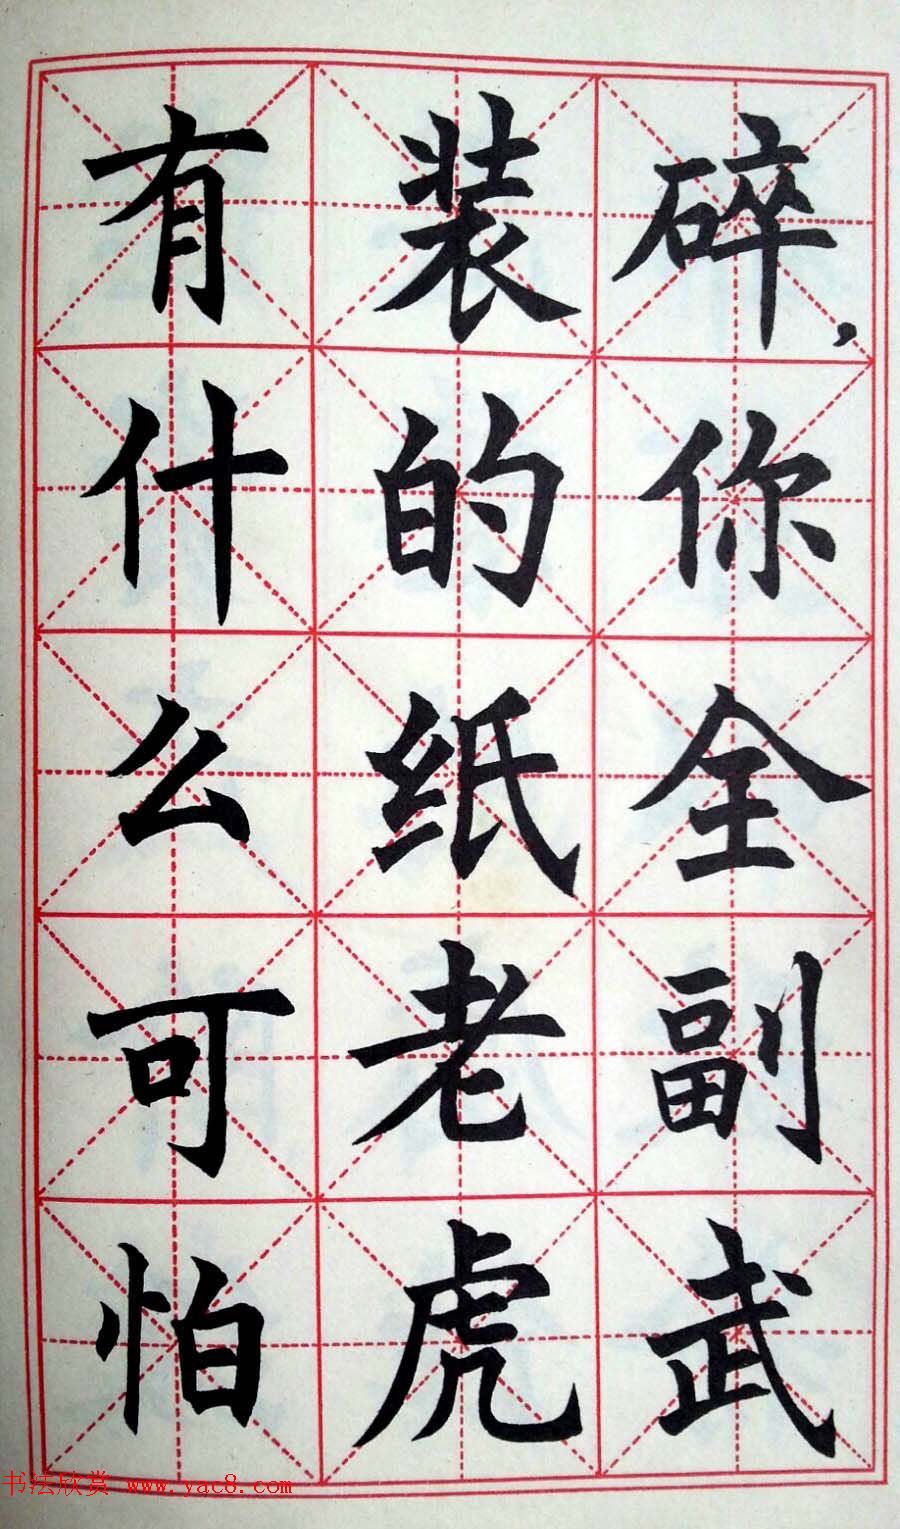 碎,你全副武
装的纸老虎
有什么可怕
书法欣赏 www.yac8.com